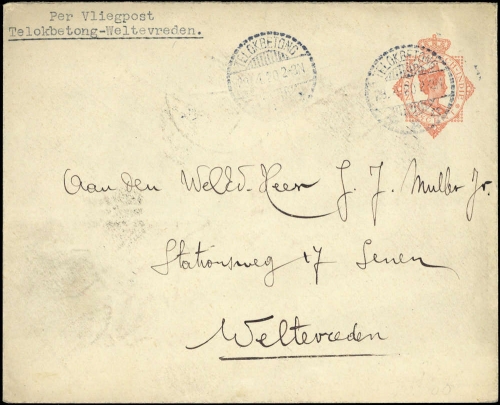 Per Vliegpost
Telokbetong-Weltevreden.
TELOKBETONG
TELOKBETONG
Aan den WelEd. Heer J. J. Muller Jr.
Stationsweg 17 Senen
Weltevreden